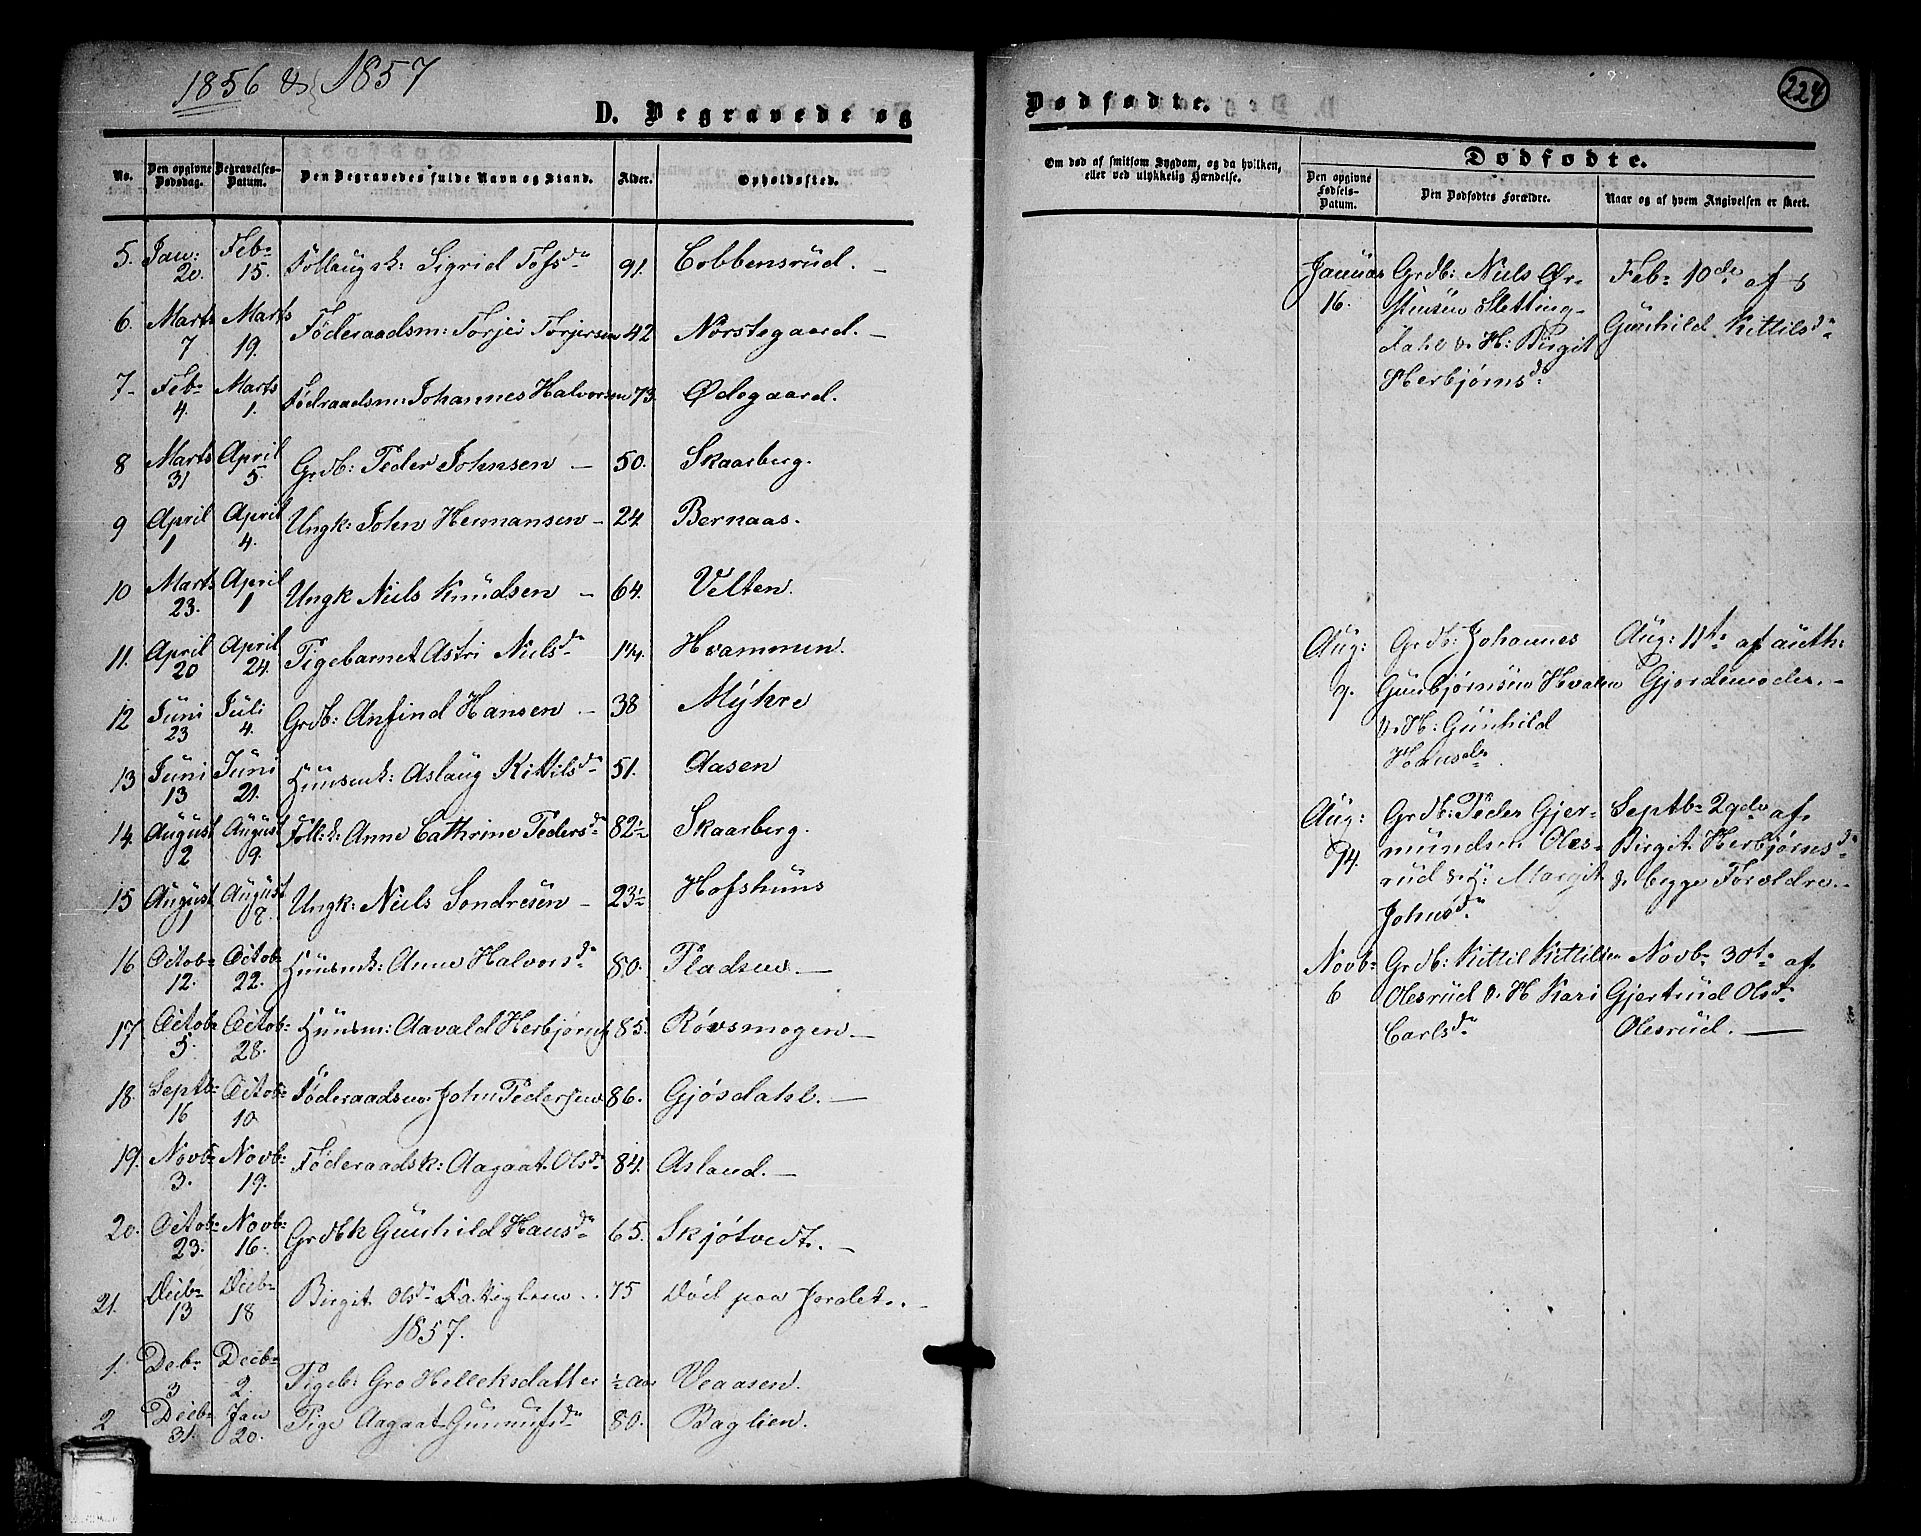 1856 & 1857
D. Begravede og
No.
Den opgivne Dødsdag.
Begravelses-Datum.
Den Begravedes fulde Navn og Stand.
Alder.
Opholdssted.
5. Jan: 20. Feb: 15. Føllaugsk: Sigrid Tofsdr 91. Cobbensrüd. —
6. Marts 7 Marts 19. Føderaadsm: Torjei Torjersen 42 Norstegaard. —
7- Feb: 4. Marts 1. Födraadsm: Johannes Halvorsen 73. Ødegaard.
8 Marts 31 April 5. Grdb: Peder Johnsen — 50. Skaarberg.
9 April 1 April 4. Ungk: John Hermansen — 24 Bernaas.
10 Marts 23. April 1 Ungk Niels Knüdsen — 64. Velten.
11. April 20 April 24. Pigebarnet Astri Nielsdr 1¼. Hvammen.
12 Jüni 23 Jüli 4. Grdb: Anfind Hansen — 38 Mÿhre
13 Jüni 13 Jüni 21. Hüusmk: Aslaüg Kittilsdr 51. Aasen
14. Aügust 2 Aügust 9. Folk: Anne Cathrine Pedersdr 82½ Skaarberg.
15 Aügust 1 Aügust 8. Ungk: Niels Sondresen — 23½ Hofshüus
16 Octob: 12. Octob: 22. Hüusmk: Anne Halvorsdr 80. Pladsen —
17. Octob: 5. Octob: 28. Hüusm: Aavald Herbjørns 85. Røvsmogen —
18. Septb: 16 Octob: 10 Føderaadsm: John Pedersen 86. Gjøsdahl. —
19. Novb: 3. Novb: 19. Føderaadsk: Aagaat Olsdr 84. Asland. —
20. Octob: 23. Novb: 16. Grdbk Günhild Hansdr 65. Skjøtvedt. —
21. Decb: 13 Decb: 18 Birgit Olsdr Fattiglem . . 75 Död paa Jordet. . —
1857.
1. Deb: 3 Decb: 2. Pigeb: Gro Helleksdatter ½ aar Veaasen.
2 Decb: 31. Jan 20. Pige Aagaat Gunnufsdr 80. Baglien.
Dødfødte.
224
Om død af smitsom Sygdom, og da hvilken,
eller ved ulykkelig Hændelse.
Dødfødte.
Den opgivne Fødsels-Datum.
Den Dødfødtes Forældre.
Naar og af hvem Angivelsen er skeet.
Januar 16. Grdb: Niels Ør- Feb: 10de af
stensen Sletting- Günhild Kittilsdr
dahl & H: Birgit
Herbjørnsdr
Aug: 9. Grdb: Johannes Aug: 11te af auth:
Günbjørnsen Hvalen Gjordemoder. —
& H: Günhild
Hansdr.
Aug: 14. Grdb: Peder Gjer- Septb: 29de af
mundsen Oles- Birgit Herbjørnsdr
rüd & H: Margit & begge Forældre. —
Johnsdr
Novb: 6 Grdb: Kittil Kittilsen Novb: 30te af
Olesrüd & H Kari Gjertrüd Olsdr
Carlsdr Olesrüd. —